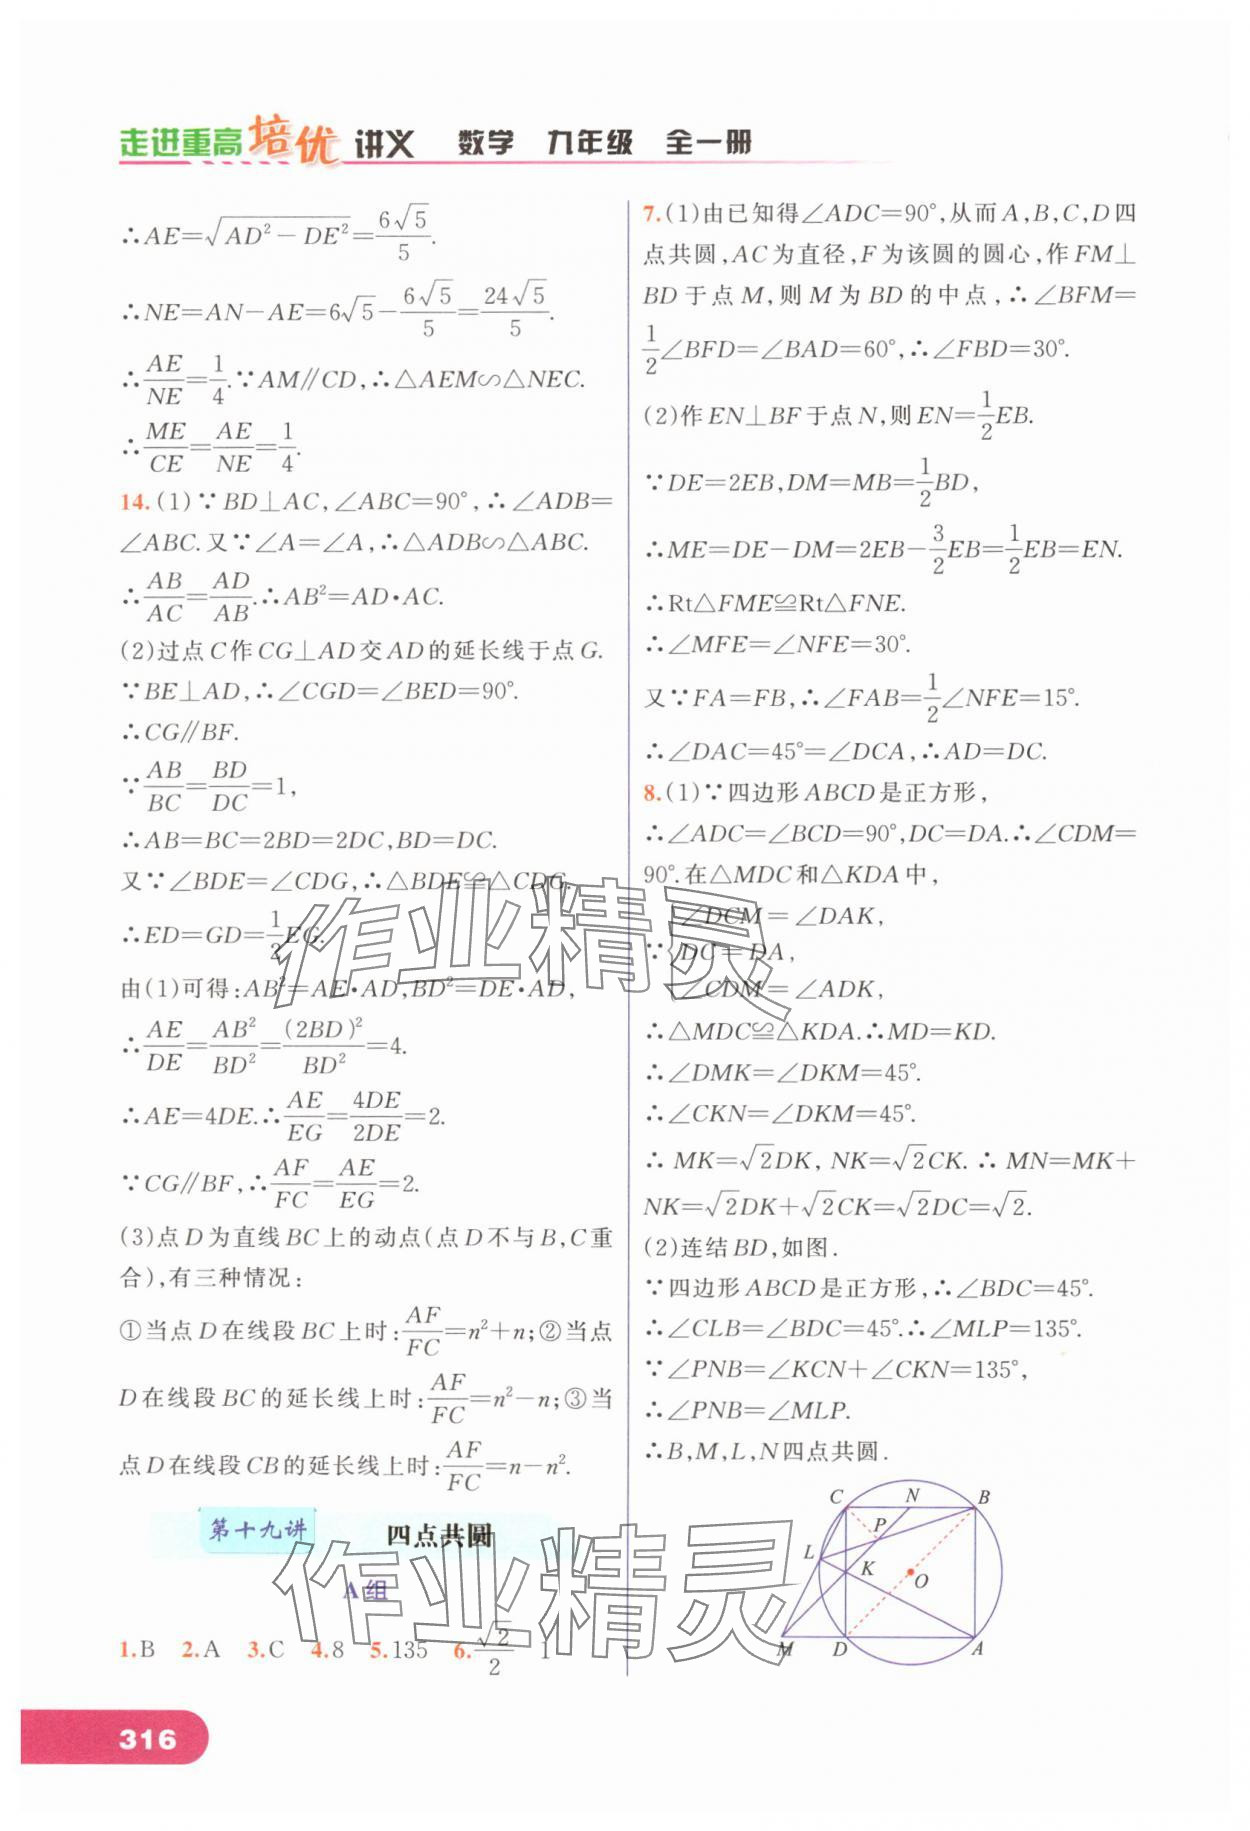 走进重高培优讲义 数学 九年级 全一册
∴AE=√(AD²−DE²)=6√5/5.
∴NE=AN−AE=6√5−6√5/5=24√5/5.
∴AE/NE=1/4.∵AM∥CD,∴△AEM∽△NEC.
∴ME/CE=AE/NE=1/4.
14.(1)∵BD⊥AC,∠ABC=90°,∴∠ADB=
∠ABC.又∵∠A=∠A,∴△ADB∽△ABC.
∴AB/AC=AD/AB.∴AB²=AD·AC.
(2)过点C作CG⊥AD交AD的延长线于点G.
∵BE⊥AD,∴∠CGD=∠BED=90°.
∴CG∥BF.
∵AB/BC=BD/DC=1,
∴AB=BC=2BD=2DC,BD=DC.
又∵∠BDE=∠CDG,∴△BDE≌△CDG.
∴ED=GD=1/2EG.
由(1)可得:AB²=AE·AD,BD²=DE·AD,
∴AE/DE=AB²/BD²=(2BD)²/BD²=4.
∴AE=4DE.∴AE/EG=4DE/2DE=2.
∵CG∥BF,∴AF/FC=AE/EG=2.
(3)点D为直线BC上的动点(点D不与B,C重
合),有三种情况:
①当点D在线段BC上时:AF/FC=n²+n;②当点
D在线段BC的延长线上时:AF/FC=n²−n;③当
点D在线段CB的延长线上时:AF/FC=n−n².
第十九讲 四点共圆
A组
1.B 2.A 3.C 4.8 5.135 6.√2/2 1
7.(1)由已知得∠ADC=90°,从而A,B,C,D四
点共圆,AC为直径,F为该圆的圆心,作FM⊥
BD于点M,则M为BD的中点,∴∠BFM=
1/2∠BFD=∠BAD=60°,∴∠FBD=30°.
(2)作EN⊥BF于点N,则EN=1/2EB.
∵DE=2EB,DM=MB=1/2BD,
∴ME=DE−DM=2EB−3/2EB=1/2EB=EN.
∴Rt△FME≌Rt△FNE.
∴∠MFE=∠NFE=30°.
又∵FA=FB,∴∠FAB=1/2∠NFE=15°.
∴∠DAC=45°=∠DCA,∴AD=DC.
8.(1)∵四边形ABCD是正方形,
∴∠ADC=∠BCD=90°,DC=DA.∴∠CDM=
90°.在△MDC和△KDA中,
∠DCM=∠DAK,
∵{DC=DA,
∠CDM=∠ADK,
∴△MDC≌△KDA.∴MD=KD.
∴∠DMK=∠DKM=45°.
∴∠CKN=∠DKM=45°.
∴MK=√2DK,NK=√2CK.∴MN=MK+
NK=√2DK+√2CK=√2DC=√2.
(2)连结BD,如图.
∵四边形ABCD是正方形,∴∠BDC=45°.
∴∠CLB=∠BDC=45°.∴∠MLP=135°.
∵∠PNB=∠KCN+∠CKN=135°,
∴∠PNB=∠MLP.
∴B,M,L,N四点共圆.
C N B
P
L
K O
M D A
作业精灵
作业精灵
316